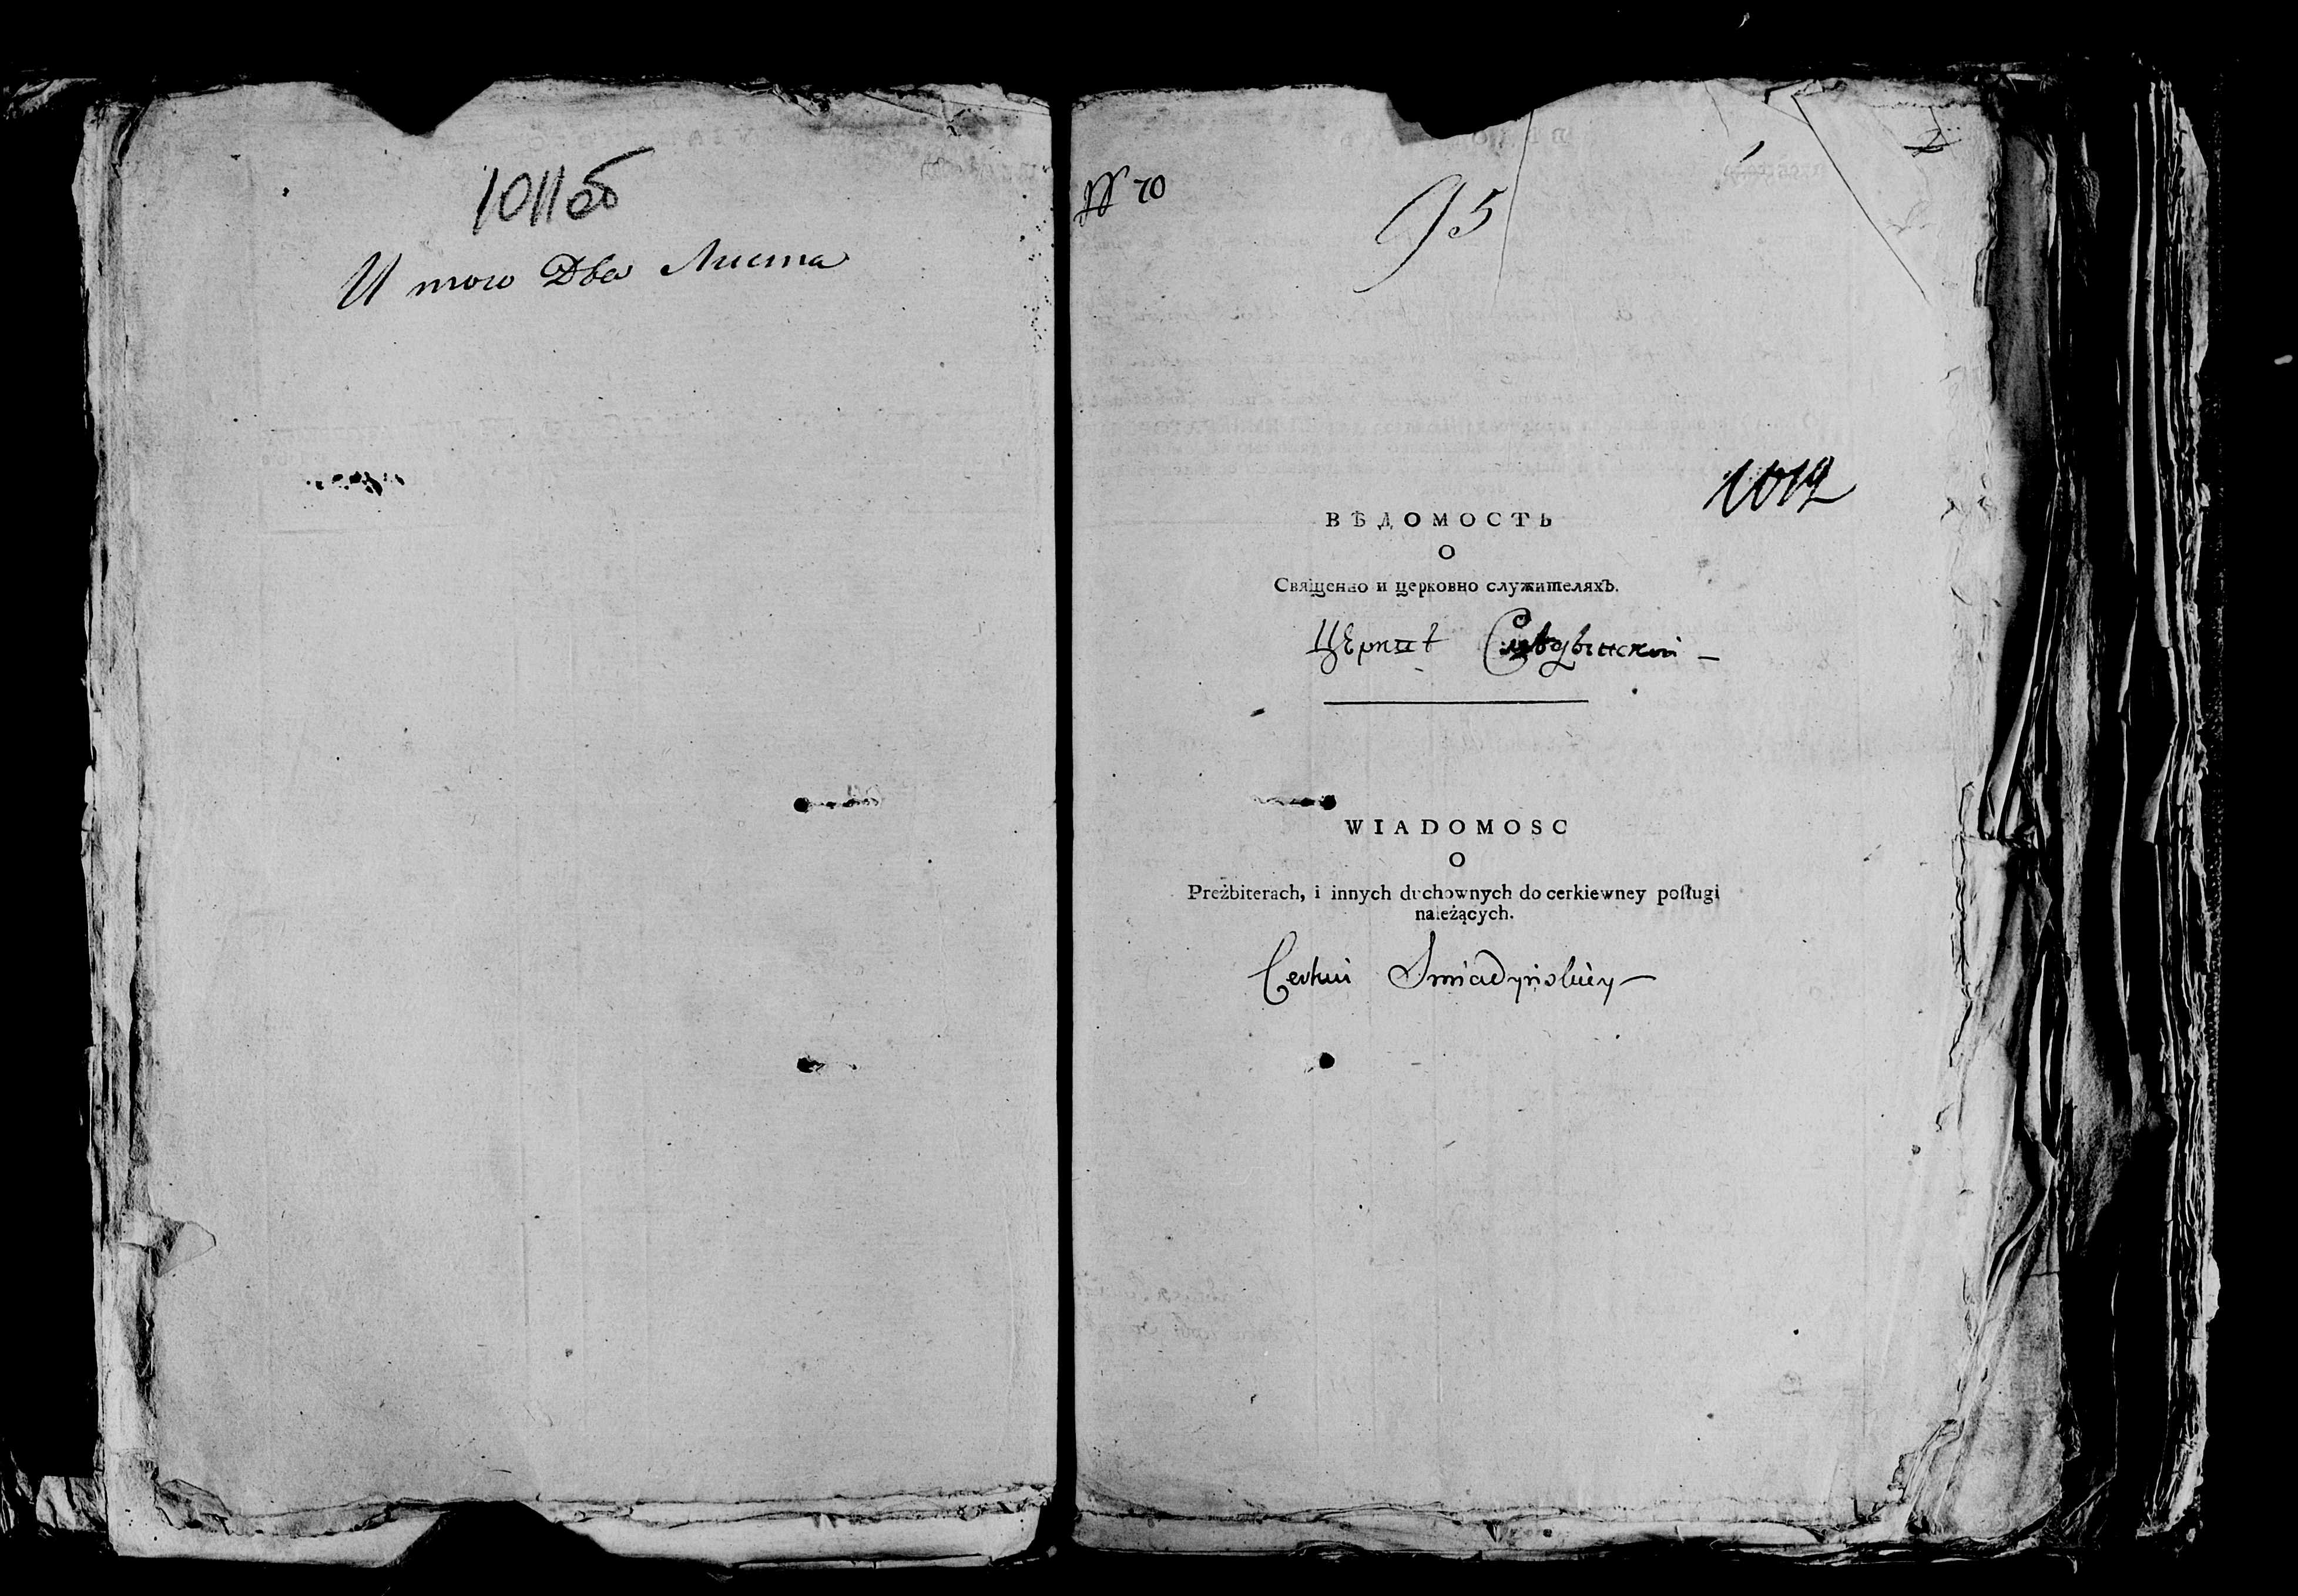 1011об
И того Два Листа
№ 70
95
1012
ВѢДОМОСТЬ
О
Священно и церковно служителяхЪ.
Церкве
WIADOMOSC
O
Preżbiterach, i innych duchownych do cerkiewney posługi
należących.
Cerkwi Smiadyńskiey